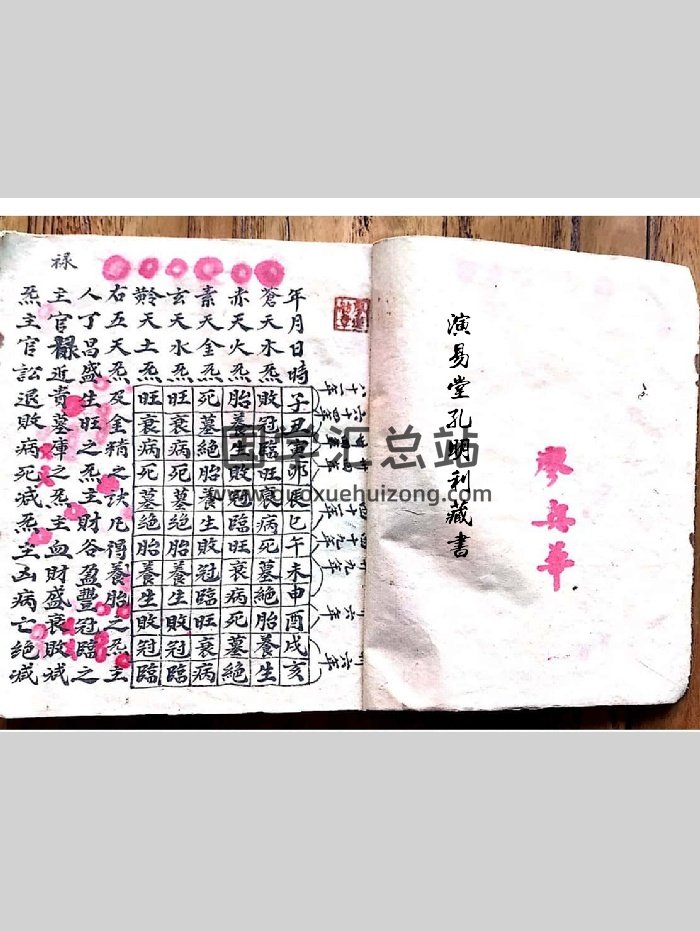 演易堂孔明利藏書
廖
華
六十四年
十六年
年月日時子丑寅卯辰巳午未申酉戌亥
蒼天木炁敗冠臨旺衰病死墓絕胎養生
赤天火炁胎養生敗冠臨旺衰病死墓絕
素天金炁死墓絕胎養生敗冠臨旺衰病
玄天水炁旺衰病死墓絕胎養生敗冠臨
黅天土炁旺衰病死墓絕胎養生敗冠臨
右五天炁及金精之訣凡得養胎之炁主
人丁昌盛生旺之炁主財谷盈豐冠臨之
祿
主官祿近貴墓庫之炁主血財盛衰敗减
炁主官訟退敗病死减炁主凶病亡絕减
国学汇总站
www.guoxuehuizong.com